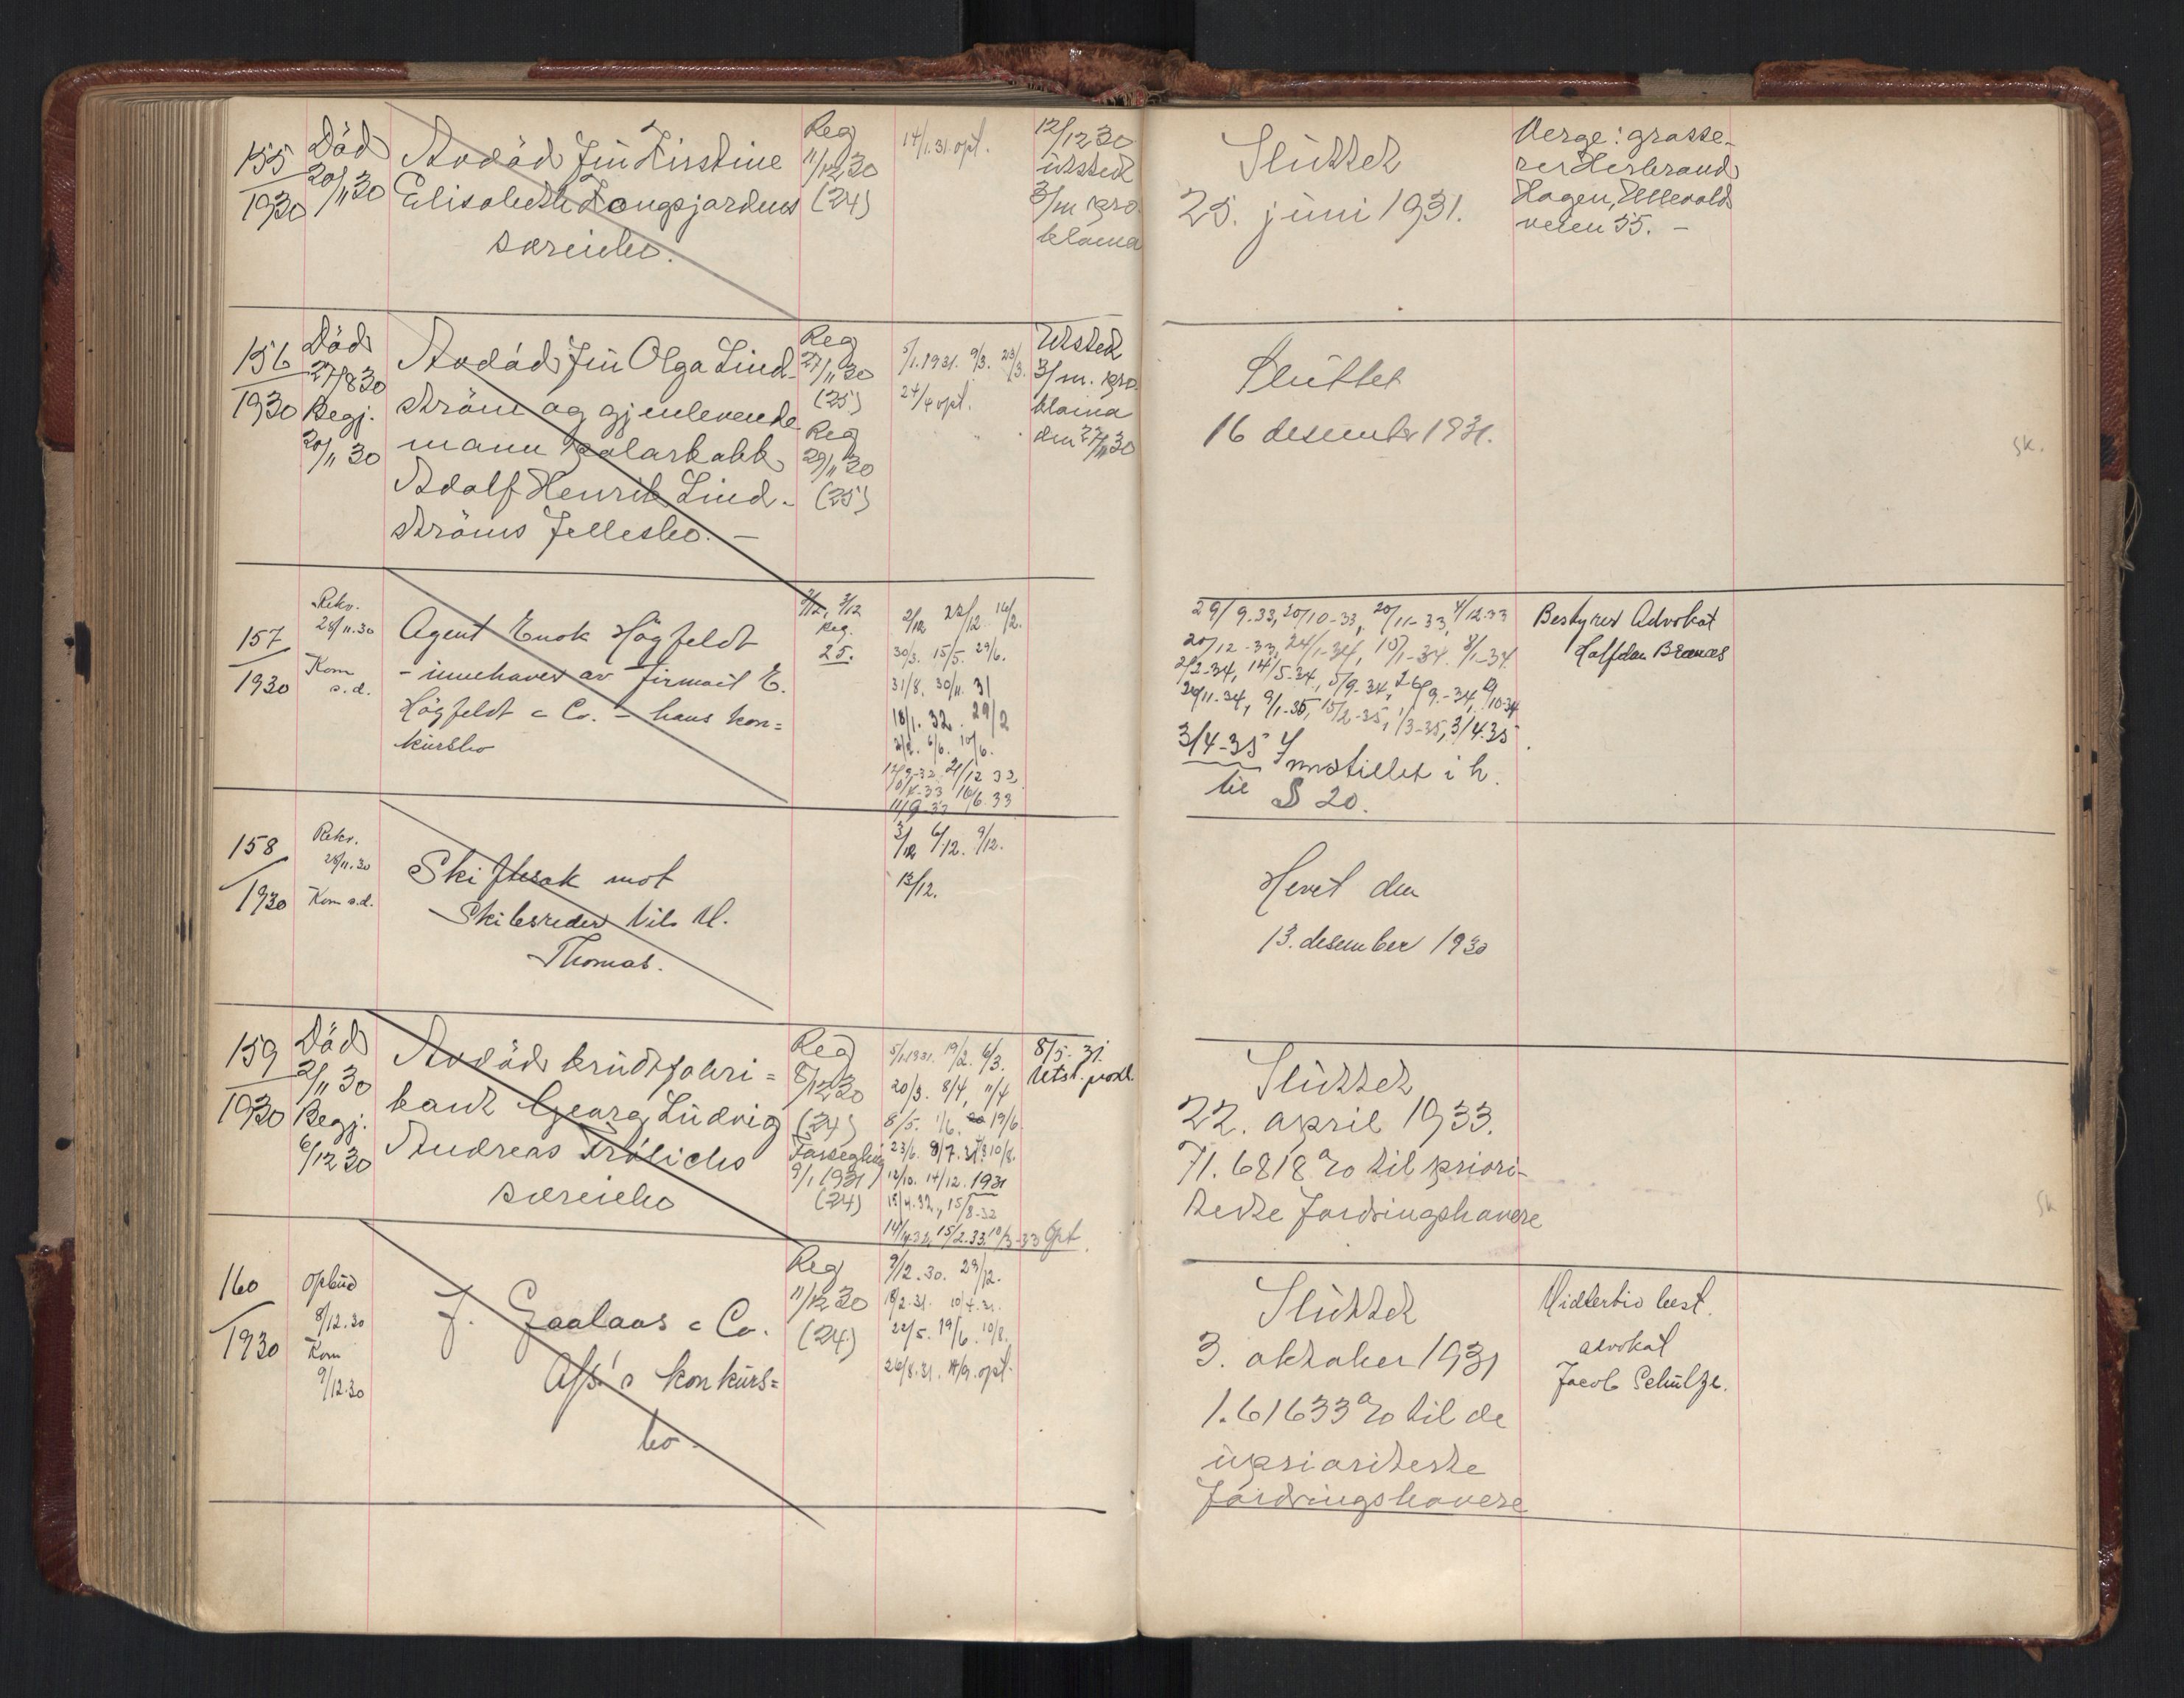 155
1930
Död
20/11 30
Avdöd fru Kirstine
Elisabeth Langsjordens
særeiebo.
Reg
11/12 30
(24)
14/1.31. opt.
12/12 30
utsted
3/m pro
klama
Sluttet
25. juni 1931.
Verge: grosse-
rer Herbrand
Hagen, Ullevolds
veien 55. -
156
1930
Död
27/8 30
Begj.
20/11 30
Avdöd fru Olga Lind-
ström og gjenlevende
mann polarkokk
Adolf Henrik Lind-
ströms fellesbo. -
Reg
27/11 30
(25)
Reg
29/11 30
(25)
5/1.1931. 9/3. 23/3.
24/4 opt.
Utsted
3/m. pro.
klama
den 27/11 30
Sluttet
16 desember 1931.
sk.
157
1930
Rekv.
28/11.30
Kom
s.d.
Agent Enok Högfeldt
- innehaver av firmaet E.
Högfeldt & Co. - hans kon=
kursbo
2/12, 3/12
Reg.
25.
2/12 22/12 16/2.
30/3. 15/5. 29/6.
31/8. 30/11. 31
18/1. 32. 29/2
2/5. 6/6. 10/6.
12/9-32 21/12 32
10/4-33 16/6.33
11/9-33
29/9.33, 20/10-33, 20/11-33, 4/12-33
20/12-33, 24/1-34, 15/1-34. 8/1-34.
2/2-34, 14/5-34, 5/9-34, 26/9-34, 9/10-34
20/11.34, 9/1-35, 15/2-35, 1/3-35, 3/4.35
3/4-35 Innstillet i h.
til § 20.
Bestyrer Advokat
Halfdan Brænes
158
1930
Rekv.
28/11.30
Kom s.d.
Skiftesak mot
Skibsreder Nils M.
Thomas.
3/12 6/12. 9/12.
13/12.
Hevet den
13. desember 1930
159
1930
Död
2/11 30
Begj.
6/12 30
Avdöd krudtfabri=
kant Georg Ludvig
Andreas Frölichs
særeiebo
Reg
8/12 30
(24)
Forsegling
9/1 1931
(24)
5/1.1931. 19/2. 6/3.
20/3. 8/4, 11/4
8/5. 1/6. 19/6
23/6. 9/7. 10/8.
12/10. 14/12. 1931
15/4.32., 15/8-32
14/11-32, 15/2.33, 10/3-33 Opt.
8/5. 31.
Utst. prokl.
Sluttet
22. april 1933.
71.6818 % til priori-
terte fordringshavere
sk
160
1930
Opbud
8/12.30
Kom
9/12.30
J. Gaalaas & Co.
A/s.'s konkurs=
bo -
Reg
11/12 30
(24)
9/12.30. 29/12.
18/2.31. 10/4.31.
22/5. 19/6. 10/8.
26/8.31. 14/9. opt.
Sluttet
3. oktober 1931
1.61633 % til de
uprioriterte
fordringshavere
Midlertid best.
advokat
Jacob Schultze.